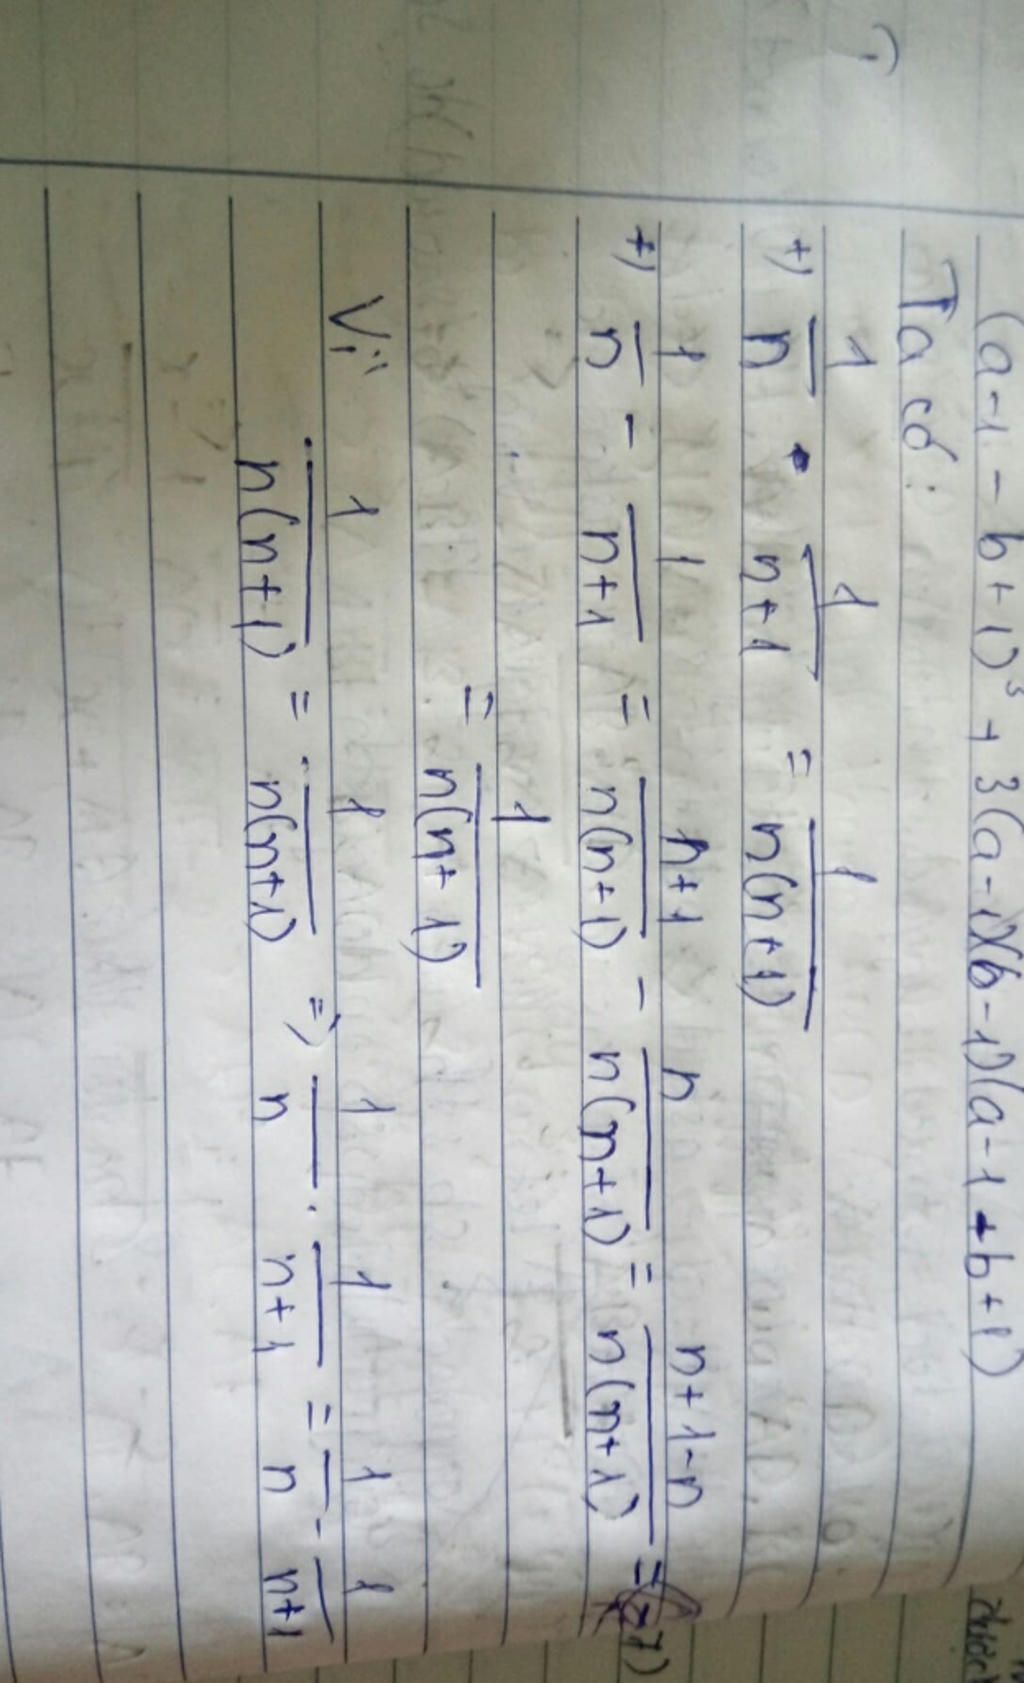 (a-1-b+1)³ + 3(a-1)(b-1)(a-1+b+1)
Ta có:
+) 1/n . 1/(n+1) = 1/(n(n+1))
+) 1/n - 1/(n+1) = (n+1)/(n(n+1)) - n/(n(n+1)) = (n+1-n)/(n(n+1)) =
= 1/(n(n+1))
Vì: 1/(n(n+1)) = 1/(n(n+1)) => 1/n . 1/(n+1) = 1/n - 1/(n+1)